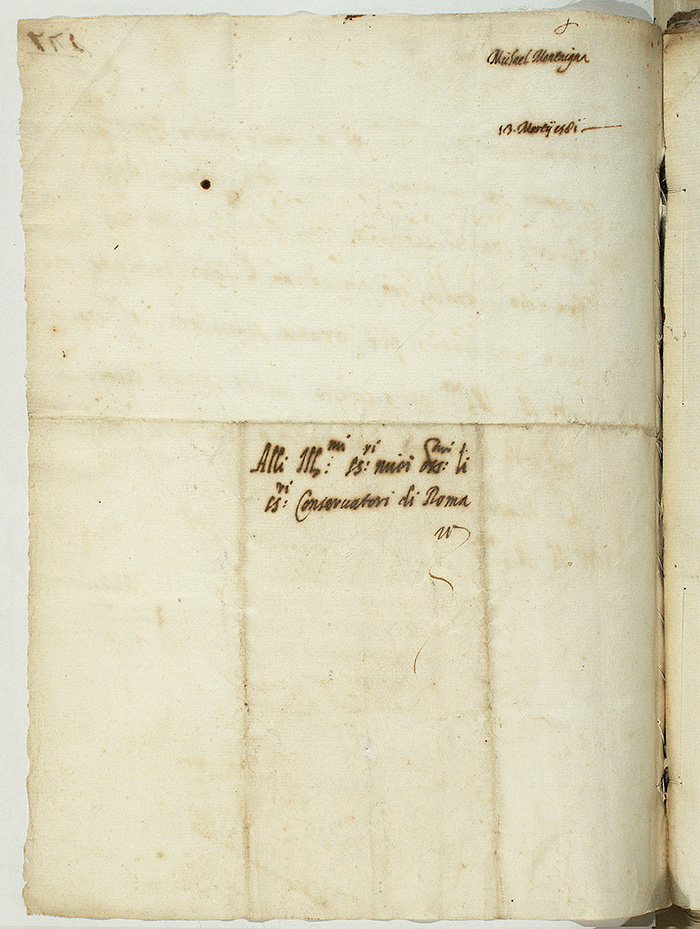 Michael Montaigna
13. Martij 1581
Alli Ill:mi ss:ri miei oss:mi li
ss:ri Conservatori di Roma